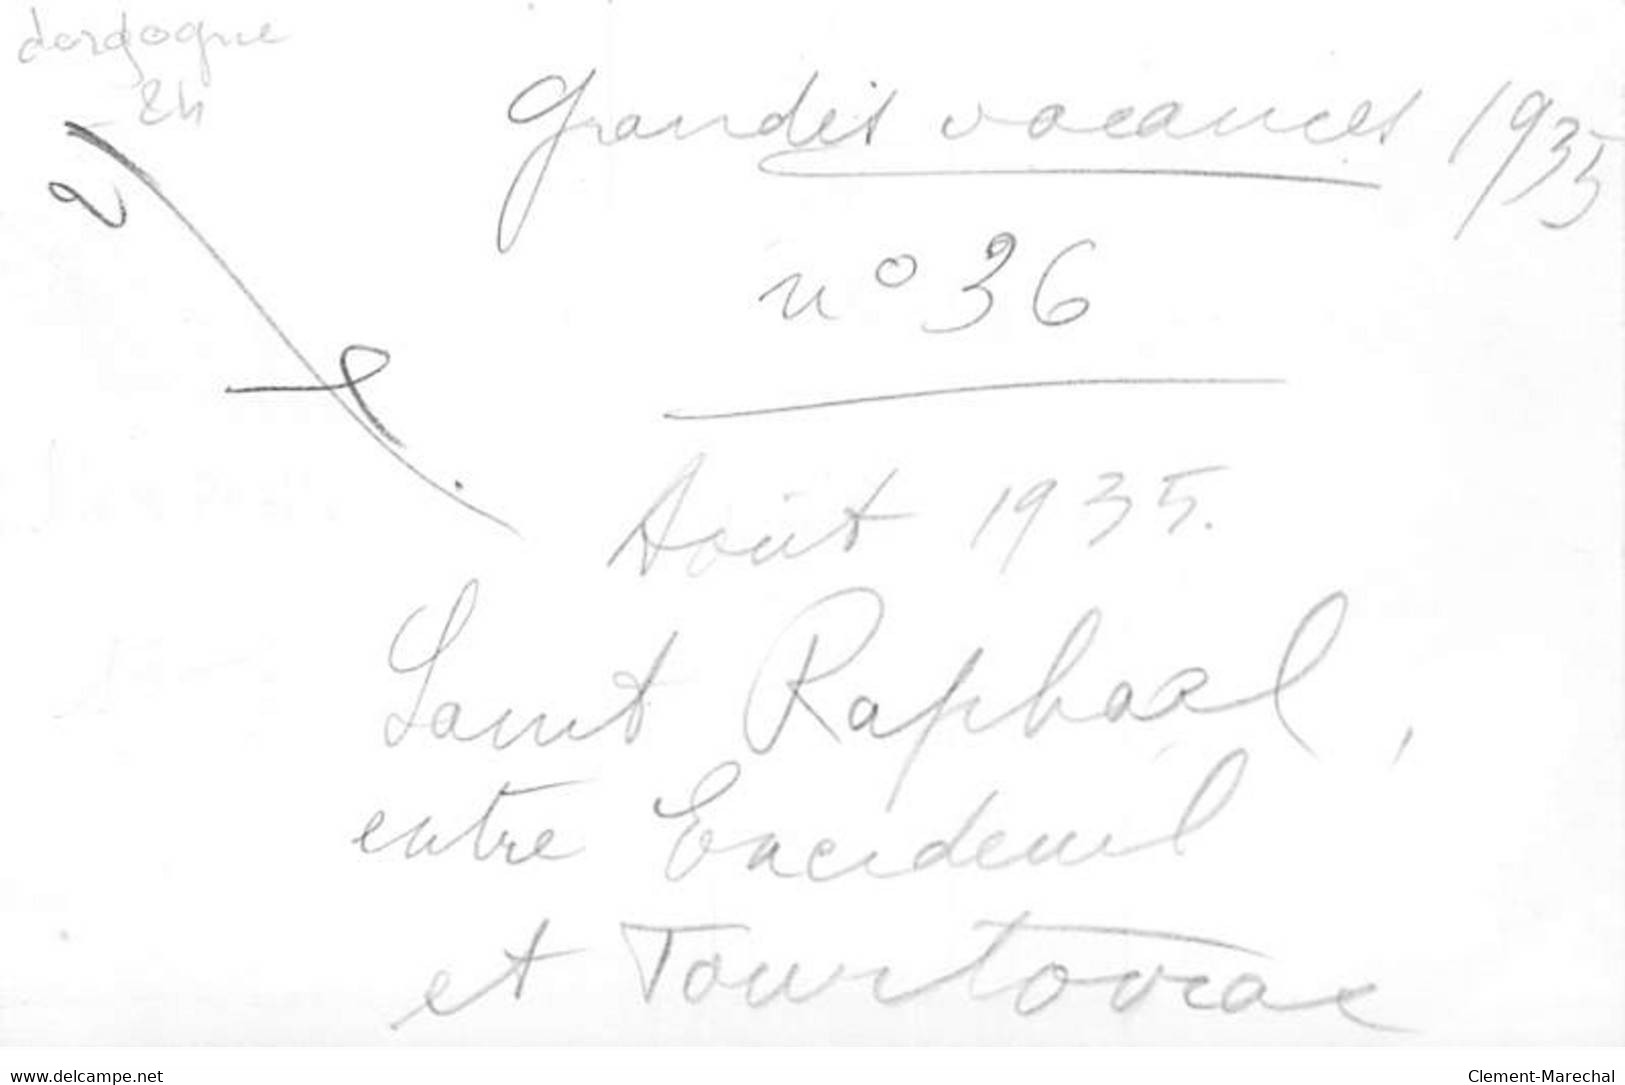 dordogne
24
grandes vacances 1935
n° 36
Août 1935.
Saint Raphaël,
entre Excideuil
et Tourtoirac
www.delcampe.net
Clement-Marechal